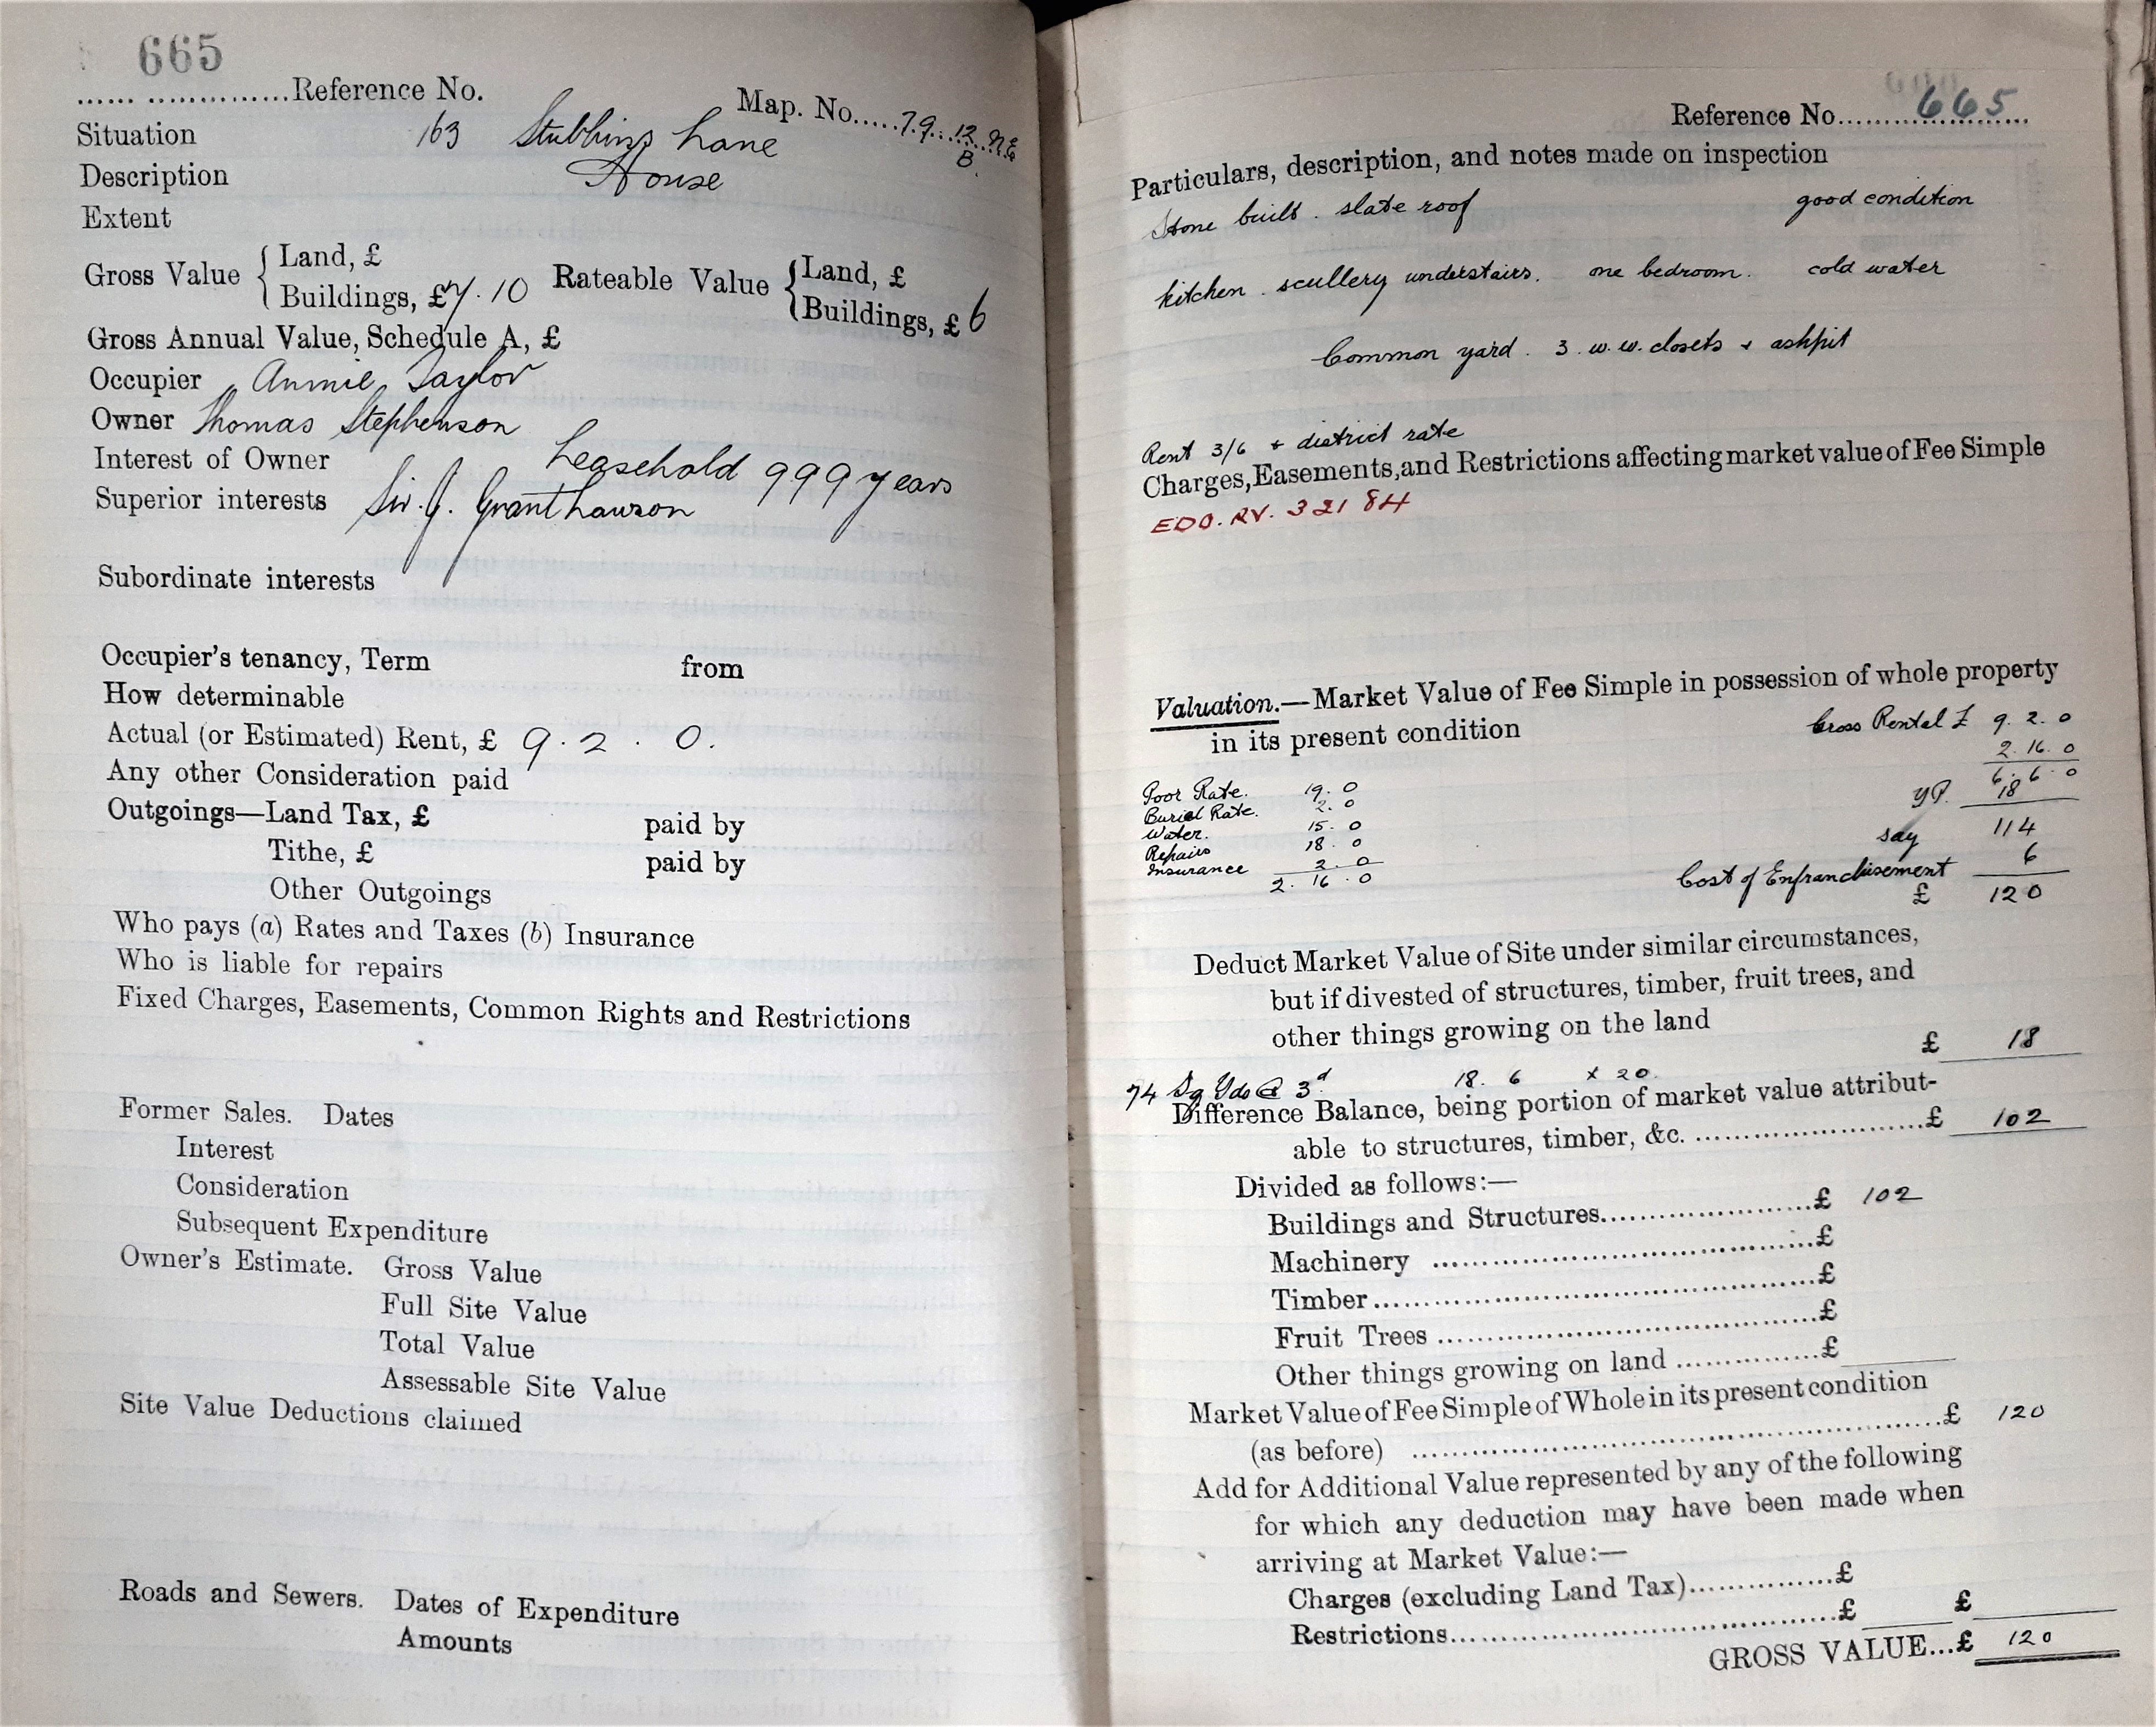 665
Reference No.
Map. No. 79 12 N.E.
B.
Situation 163 Stubbins Lane
Description House
Extent
Gross Value { Land, £
Buildings, £ 7.10
Rateable Value { Land, £
Buildings, £ 6
Gross Annual Value, Schedule A, £
Occupier Annie Taylor
Owner Thomas Stephenson
Interest of Owner Leasehold 999 years
Superior interests Sir J. Grant Lawson
Subordinate interests
Occupier's tenancy, Term from
How determinable
Actual (or Estimated) Rent, £ 9. 2. 0.
Any other Consideration paid
Outgoings—Land Tax, £ paid by
Tithe, £ paid by
Other Outgoings
Who pays (a) Rates and Taxes (b) Insurance
Who is liable for repairs
Fixed Charges, Easements, Common Rights and Restrictions
Former Sales. Dates
Interest
Consideration
Subsequent Expenditure
Owner's Estimate. Gross Value
Full Site Value
Total Value
Assessable Site Value
Site Value Deductions claimed
Roads and Sewers. Dates of Expenditure
Amounts
Reference No. 665
Particulars, description, and notes made on inspection
Stone built . slate roof good condition
kitchen . scullery understairs. one bedroom. cold water
Common yard . 3 . w.w. closets + ashpit
Rent 3/6 + district rate
Charges, Easements, and Restrictions affecting market value of Fee Simple
EDO. RV. 321 84
Valuation.—Market Value of Fee Simple in possession of whole property
in its present condition
Gross Rental £ 9. 2. 0
2. 16. 0
6. 6. 0
YP. 18
say 114
Cost of Enfranchisement 6
£ 120
Poor Rate. 19. 0
Burial Rate. 2. 0
Water. 15. 0
Repairs 18. 0
Insurance 2. 0
2. 16. 0
Deduct Market Value of Site under similar circumstances,
but if divested of structures, timber, fruit trees, and
other things growing on the land
£ 18
74 Sq Yds @ 3d 18. 6 x 20.
Difference Balance, being portion of market value attribut-
able to structures, timber, &c. £ 102
Divided as follows:—
Buildings and Structures £ 102
Machinery £
Timber £
Fruit Trees £
Other things growing on land £
Market Value of Fee Simple of Whole in its present condition
(as before) £ 120
Add for Additional Value represented by any of the following
for which any deduction may have been made when
arriving at Market Value:—
Charges (excluding Land Tax) £
Restrictions £ £
GROSS VALUE...£ 120